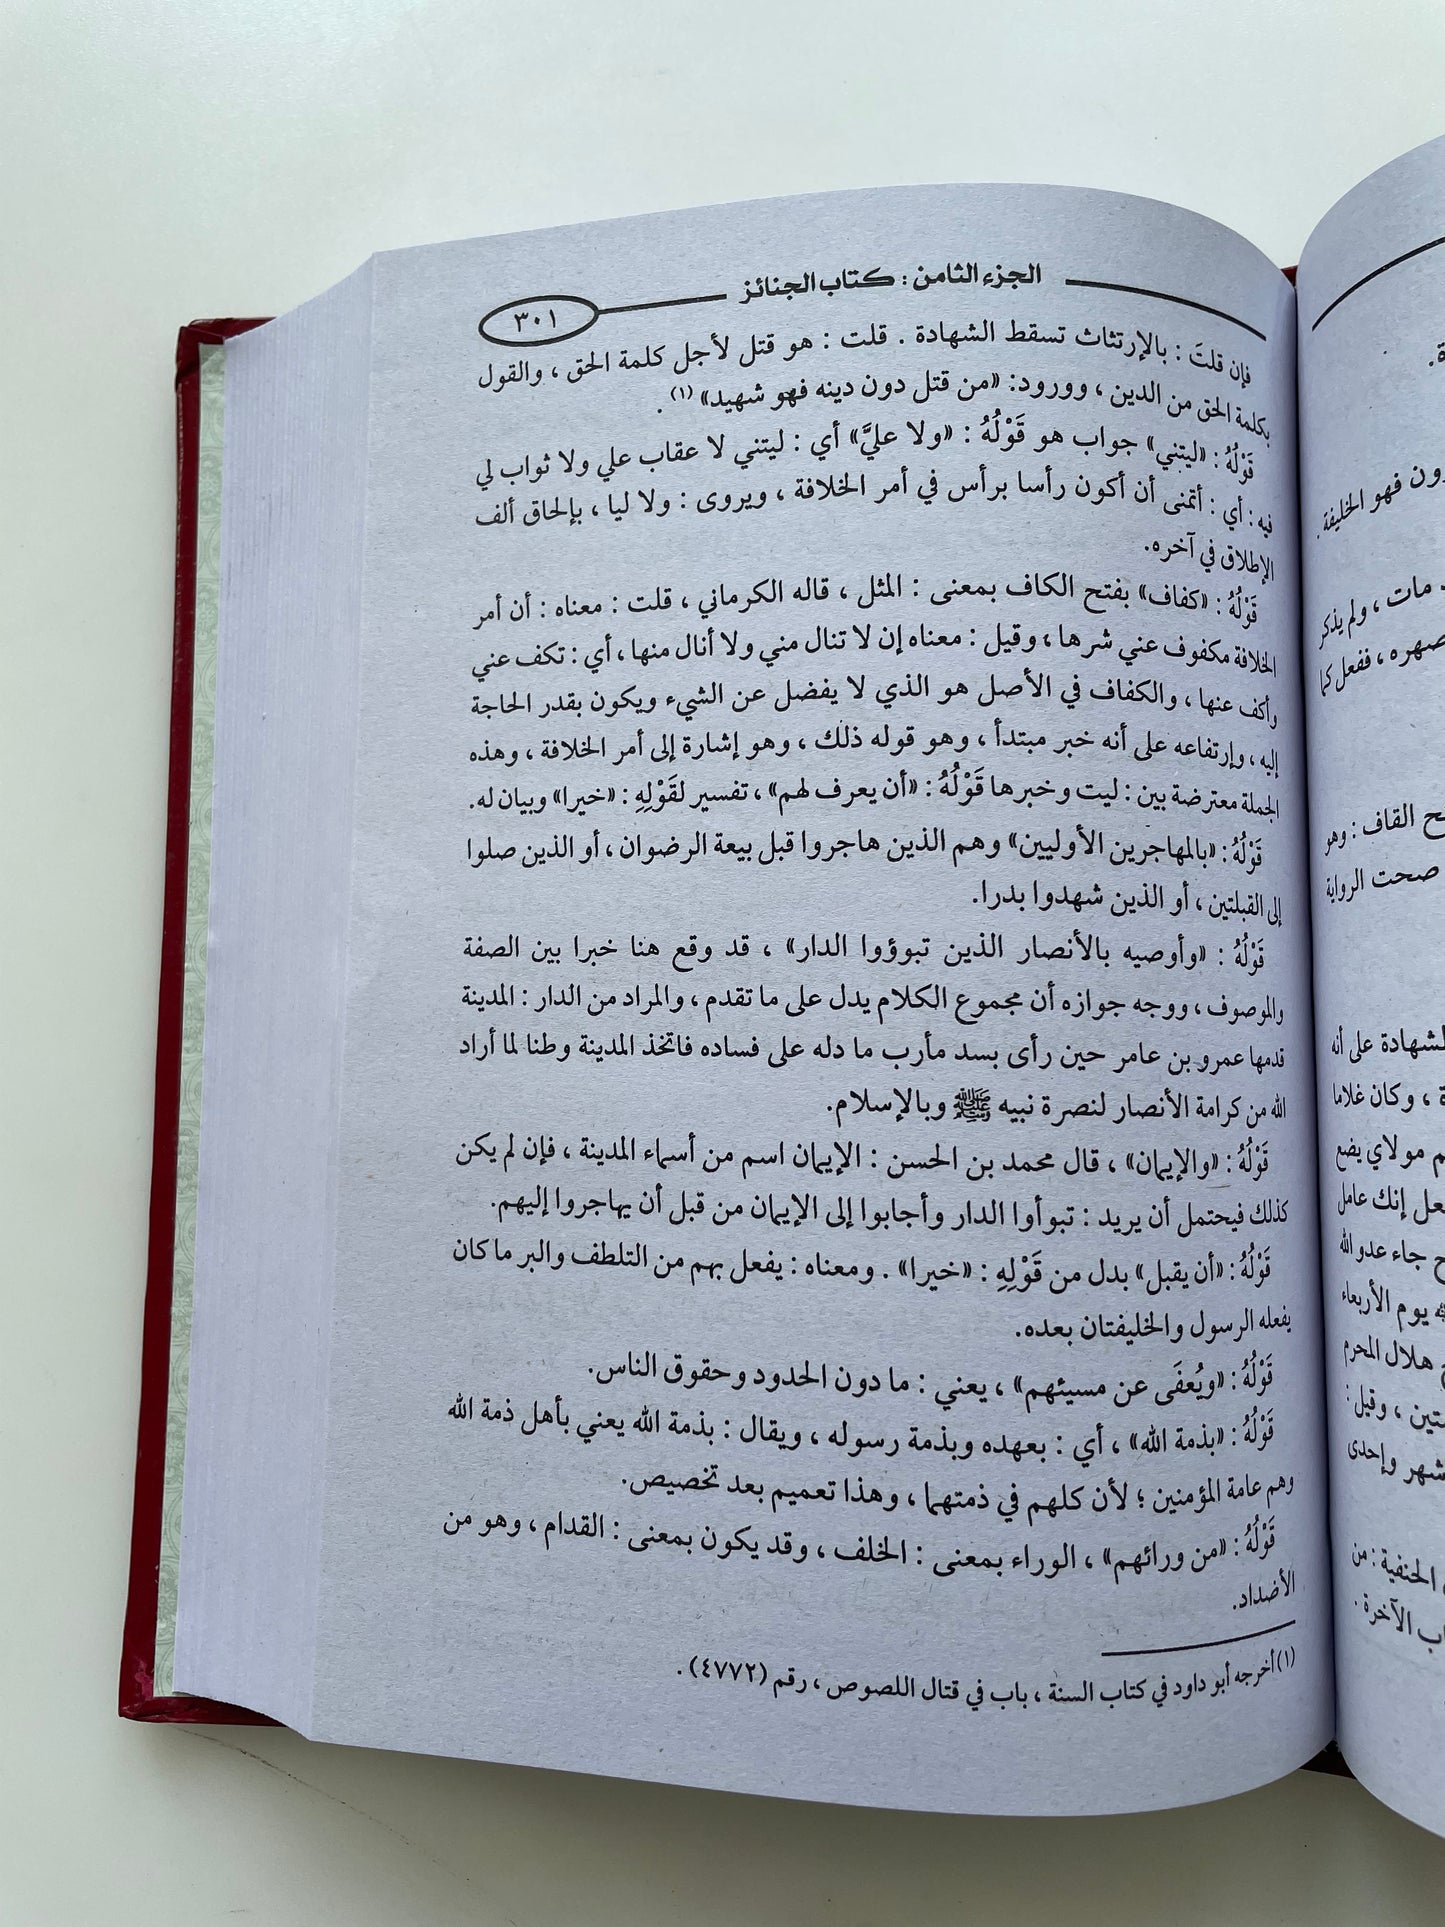 الجزء الثامن : كتاب الجنائز
٣٠١
فإن قلتَ : بالإرتثاث تسقط الشهادة . قلت : هو قتل لأجل كلمة الحق ، والقول
بكلمة الحق من الدين ، وورود: «من قتل دون دينه فهو شهيد» (١) .
قَوْلُهُ : «ليتني» جواب هو قَوْلُهُ : «ولا عليَّ» أي : ليتني لا عقاب علي ولا ثواب لي
فيه : أي : أتمنى أن أكون رأسا برأس في أمر الخلافة ، ويروى : ولا ليا ، بإلحاق ألف
الإطلاق في آخره.
قَوْلُهُ : «كفاف» بفتح الكاف بمعنى : المثل ، قاله الكرماني ، قلت : معناه : أن أمر
الخلافة مكفوف عني شرها ، وقيل : معناه إن لا تنال مني ولا أنال منها ، أي : تكف عني
وأكف عنها ، والكفاف في الأصل هو الذي لا يفضل عن الشيء ويكون بقدر الحاجة
إليه ، وإرتفاعه على أنه خبر مبتدأ ، وهو قوله ذلك ، وهو إشارة إلى أمر الخلافة ، وهذه
الجملة معترضة بين : ليت وخبرها قَوْلُهُ : «أن يعرف لهم» ، تفسير لقَوْلِهِ : «خيرا» وبيان له.
قَوْلُهُ : «بالمهاجرين الأوليين» وهم الذين هاجروا قبل بيعة الرضوان ، أو الذين صلوا
إلى القبلتين ، أو الذين شهدوا بدرا.
قَوْلُهُ : «وأوصيه بالأنصار الذين تبوؤوا الدار» ، قد وقع هنا خبرا بين الصفة
والموصوف ، ووجه جوازه أن مجموع الكلام يدل على ما تقدم ، والمراد من الدار : المدينة
قدمها عمرو بن عامر حين رأى بسد مأرب ما دله على فساده فاتخذ المدينة وطنا لما أراد
الله من كرامة الأنصار لنصرة نبيه ﷺ وبالإسلام.
قَوْلُهُ : «والإيمان» ، قال محمد بن الحسن : الإيمان اسم من أسماء المدينة ، فإن لم يكن
كذلك فيحتمل أن يريد : تبوأوا الدار وأجابوا إلى الإيمان من قبل أن يهاجروا إليهم.
قَوْلُهُ : «أن يقبل» بدل من قَوْلِهِ : «خيرا» . ومعناه : يفعل بهم من التلطف والبر ما كان
يفعله الرسول والخليفتان بعده.
قَوْلُهُ : «ويُعفَى عن مسيئهم» ، يعني : ما دون الحدود وحقوق الناس.
قَوْلُهُ : «بذمة الله» ، أي : بعهده وبذمة رسوله ، ويقال : بذمة الله يعني بأهل ذمة الله
وهم عامة المؤمنين ؛ لأن كلهم في ذمتهما ، وهذا تعميم بعد تخصيص.
قَوْلُهُ : «من ورائهم» ، الوراء بمعنى : الخلف ، وقد يكون بمعنى : القدام ، وهو من
الأضداد.
(١) أخرجه أبو داود في كتاب السنة ، باب في قتال اللصوص ، رقم (٤٧٧٢) .
دون فهو الخليفة .
مات ، ولم يذكر
صهره ، ففعل كما
القاف : وهو
صحت الرواية
لشهادة على أنه
، وكان غلاما
مولاي يضع
إنك عامل
جاء عدو الله
يوم الأربعاء
هلال المحرم
، وقيل :
شهر وإحدى
الحنفية : من
الآخرة .